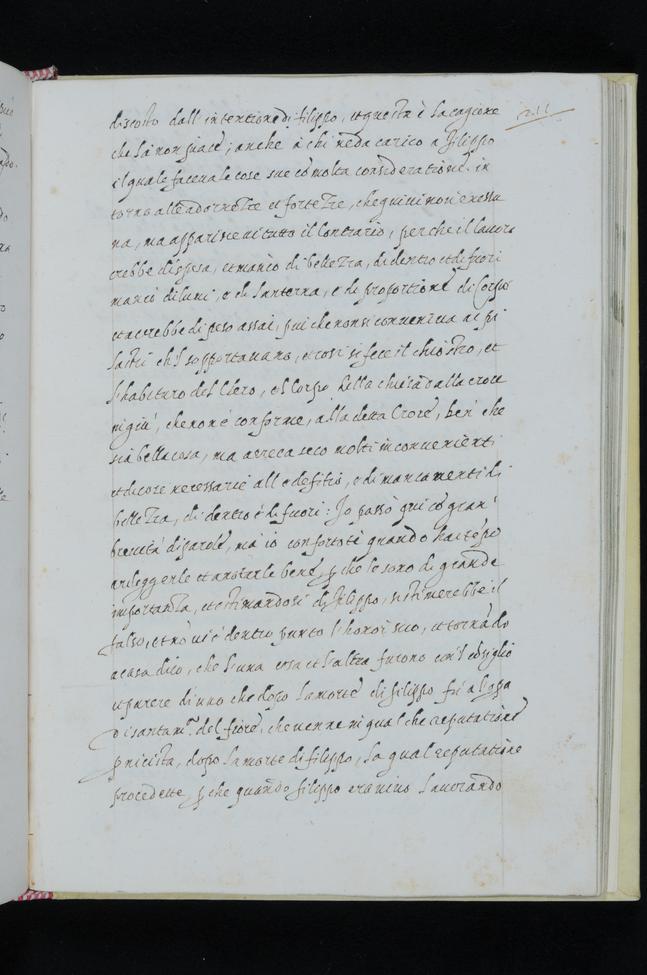 211
discosto dall'intentione di filippo, et questa è la cagione
che la non piace; anche à chi ne da carico a filippo
il quale faceua le cose sue cõ molta consideratione. in
torno alle adorneze et forteze, che quiui non n'è nessu
na, ma apparisce ui tutto il Contrario, perche il lauoro
crebbe di spesa, et mancò di belleza, di dentro et di fuori
mancò di lumi, e di lanterna, e di proportione di Corpo
et accrebbe di peso assai, piu che non si conueniua ai pi
lastri ch'l sopportauano, et cosi si fece il chiostro, et
l'habituro del Clero, e'l corpo della chiesa dalla croce
in giu', che non è conforme, alla detta Croce, ben' che
sia bella cosa, ma arreca seco molti inconuenienti
et di cose necessarie all'edefitio, e di mancamenti di
belleza, di dentro è di fuori: Io passò qui cõ gran'
breuità di parole, ma io conforto tè quando hai tẽpo
a rileggerle et a notarle bene, ꝑ che le sono di grande
importanza, et estimandosi di filippo, si stimerebbe il
falso, et nõ ui è dentro punto l'honor suo, et tornãdo
a casa dico, che l'una cosa et l'altra furono con'l cõsiglio
et parere di uno che dopo la morte di filippo fù a l'opa
di santa m.ª del fiore, che uenne in qual che reputatione
dopo la morte di filippo, la qual reputatione
procedette, ꝑ che quando filippo era uiuo lauorando